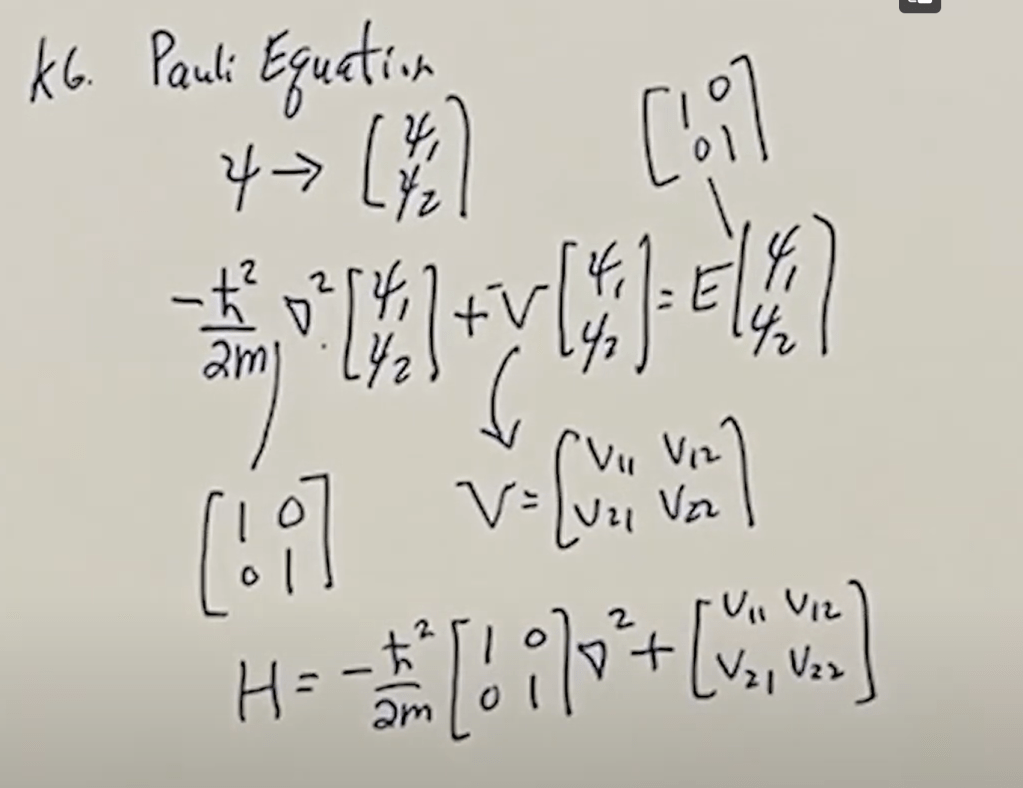 k6. Pauli Equation
ψ → [ψ₁ ψ₂]
[1 0 0 1]
-ħ²/2m ∇² [ψ₁ ψ₂] + V [ψ₁ ψ₂] = E [ψ₁ ψ₂]
[1 0 0 1]
V = [V₁₁ V₁₂ V₂₁ V₂₂]
H = -ħ²/2m [1 0 0 1] ∇² + [V₁₁ V₁₂ V₂₁ V₂₂]